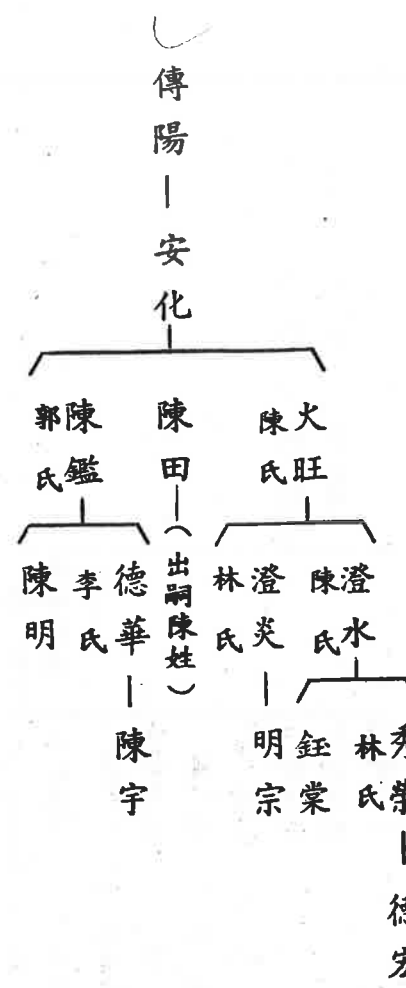 傳陽
安化
火旺
陳氏
陳田
(出嗣陳姓)
陳鑑
郭氏
澄水
陳氏
澄炎
林氏
德華
李氏
陳明
秀榮
林氏
鈺棠
明宗
陳宇
德宏